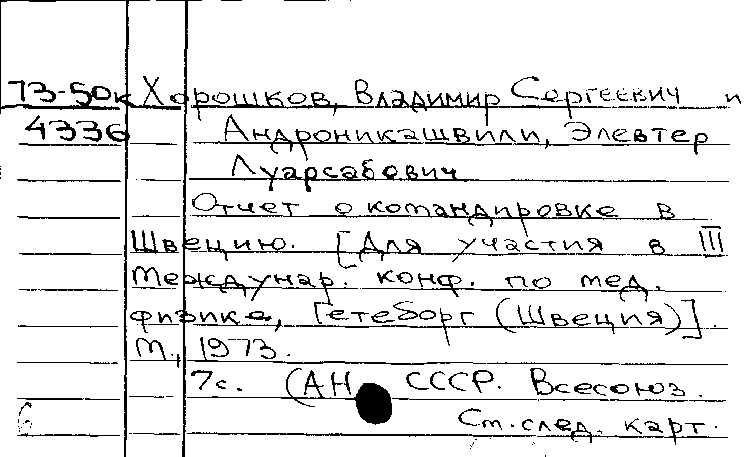 73-50к Хорошков, Владимир Сергеевич и
4336 Андроникашвили, Элевтер
Луарсабович
Отчет о командировке в
Швецию. [Для участия в III
Междунар. конф. по мед.
физике, Гетеборг (Швеция)].
М., 1973.
7с. (АН СССР. Всесоюз.
См. след. карт.
6